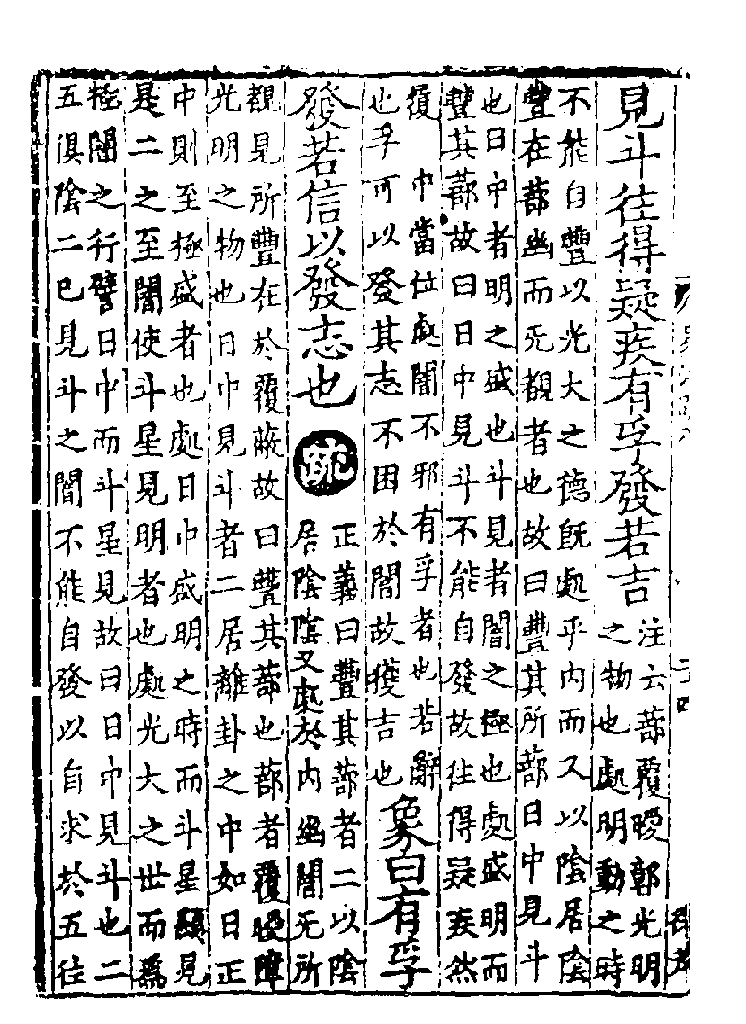 見斗往得疑疾有孚發若吉
注云蔀覆曖鄣光明
之物也處明動之時
不能自豐以光大之德旣處乎内而又以陰居陰
豐在蔀幽而无覩者也故曰豐其所蔀日中見斗
也日中者明之盛也斗見者闇之極也處盛明而
豐其蔀故曰日中見斗不能自發故往得疑疾然
覆 中當位處闇不邪有孚者也若辭
也孚可以發其志不困於闇故獲吉也
象曰有孚
發若信以發志也
疏
正義曰豐其蔀者二以陰
居陰陰又處於内幽闇无所
覩見所豐在於覆蔽故曰豐其蔀也蔀者覆曖障
光明之物也日中見斗者二居離卦之中如日正
中則至極盛者也處日中盛明之時而斗星顯見
是二之至闇使斗星見明者也處光大之世而爲
極闇之行譬日中而斗星見故曰日中見斗也二
五俱陰二已見斗之闇不能自發以自求於五往